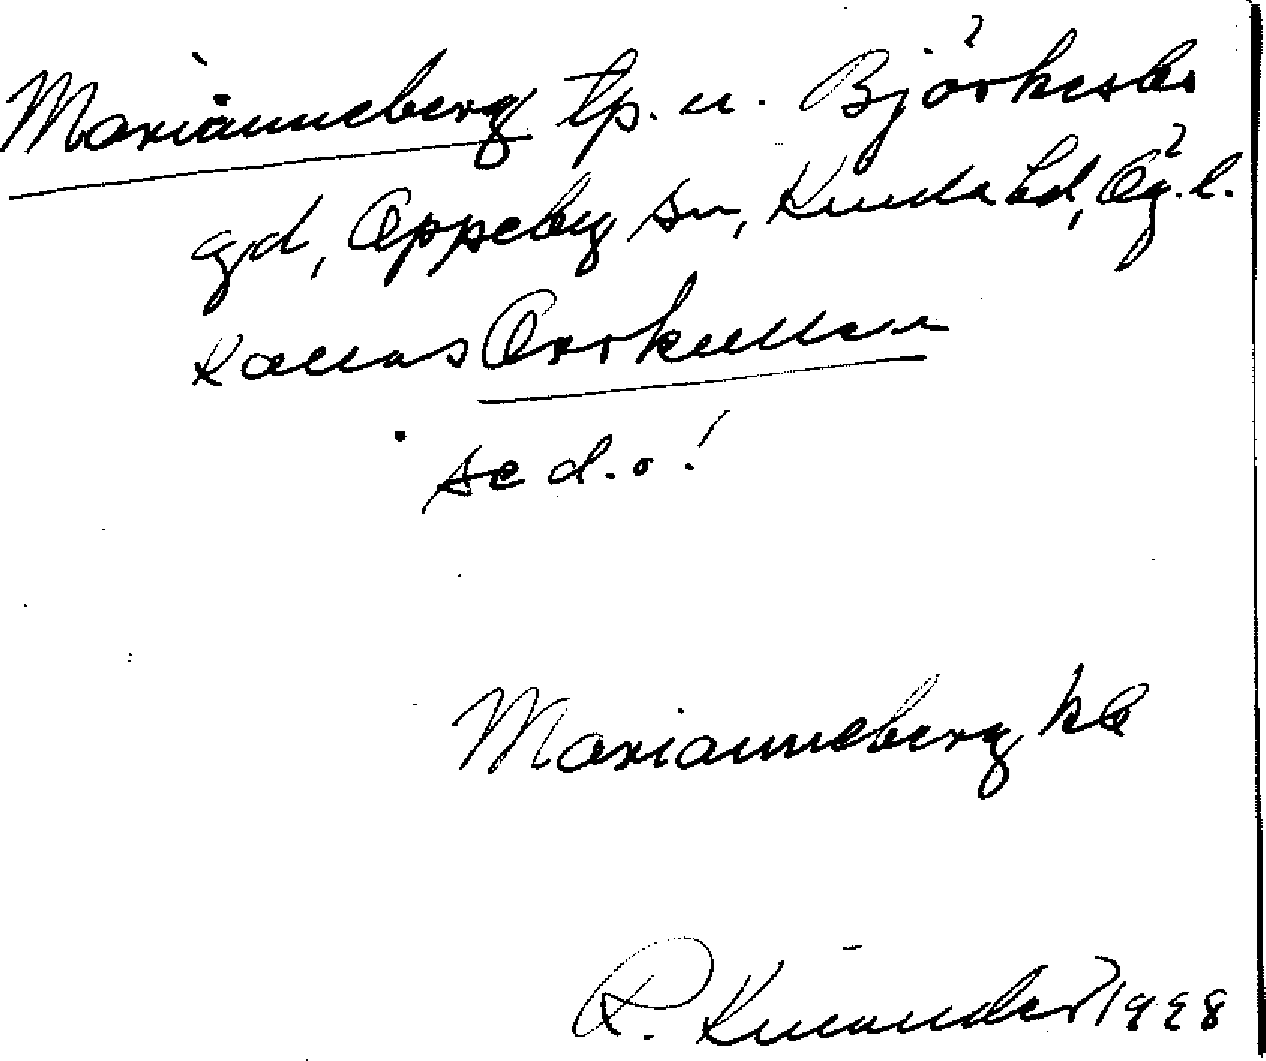 Marianneberg tp. u. Björkesbo
gd, Oppeby sn, Kinda hd, Ög. l.
Kallas Orrkullen
se d. o!
Marianneberg kb
R. Kinander 1928